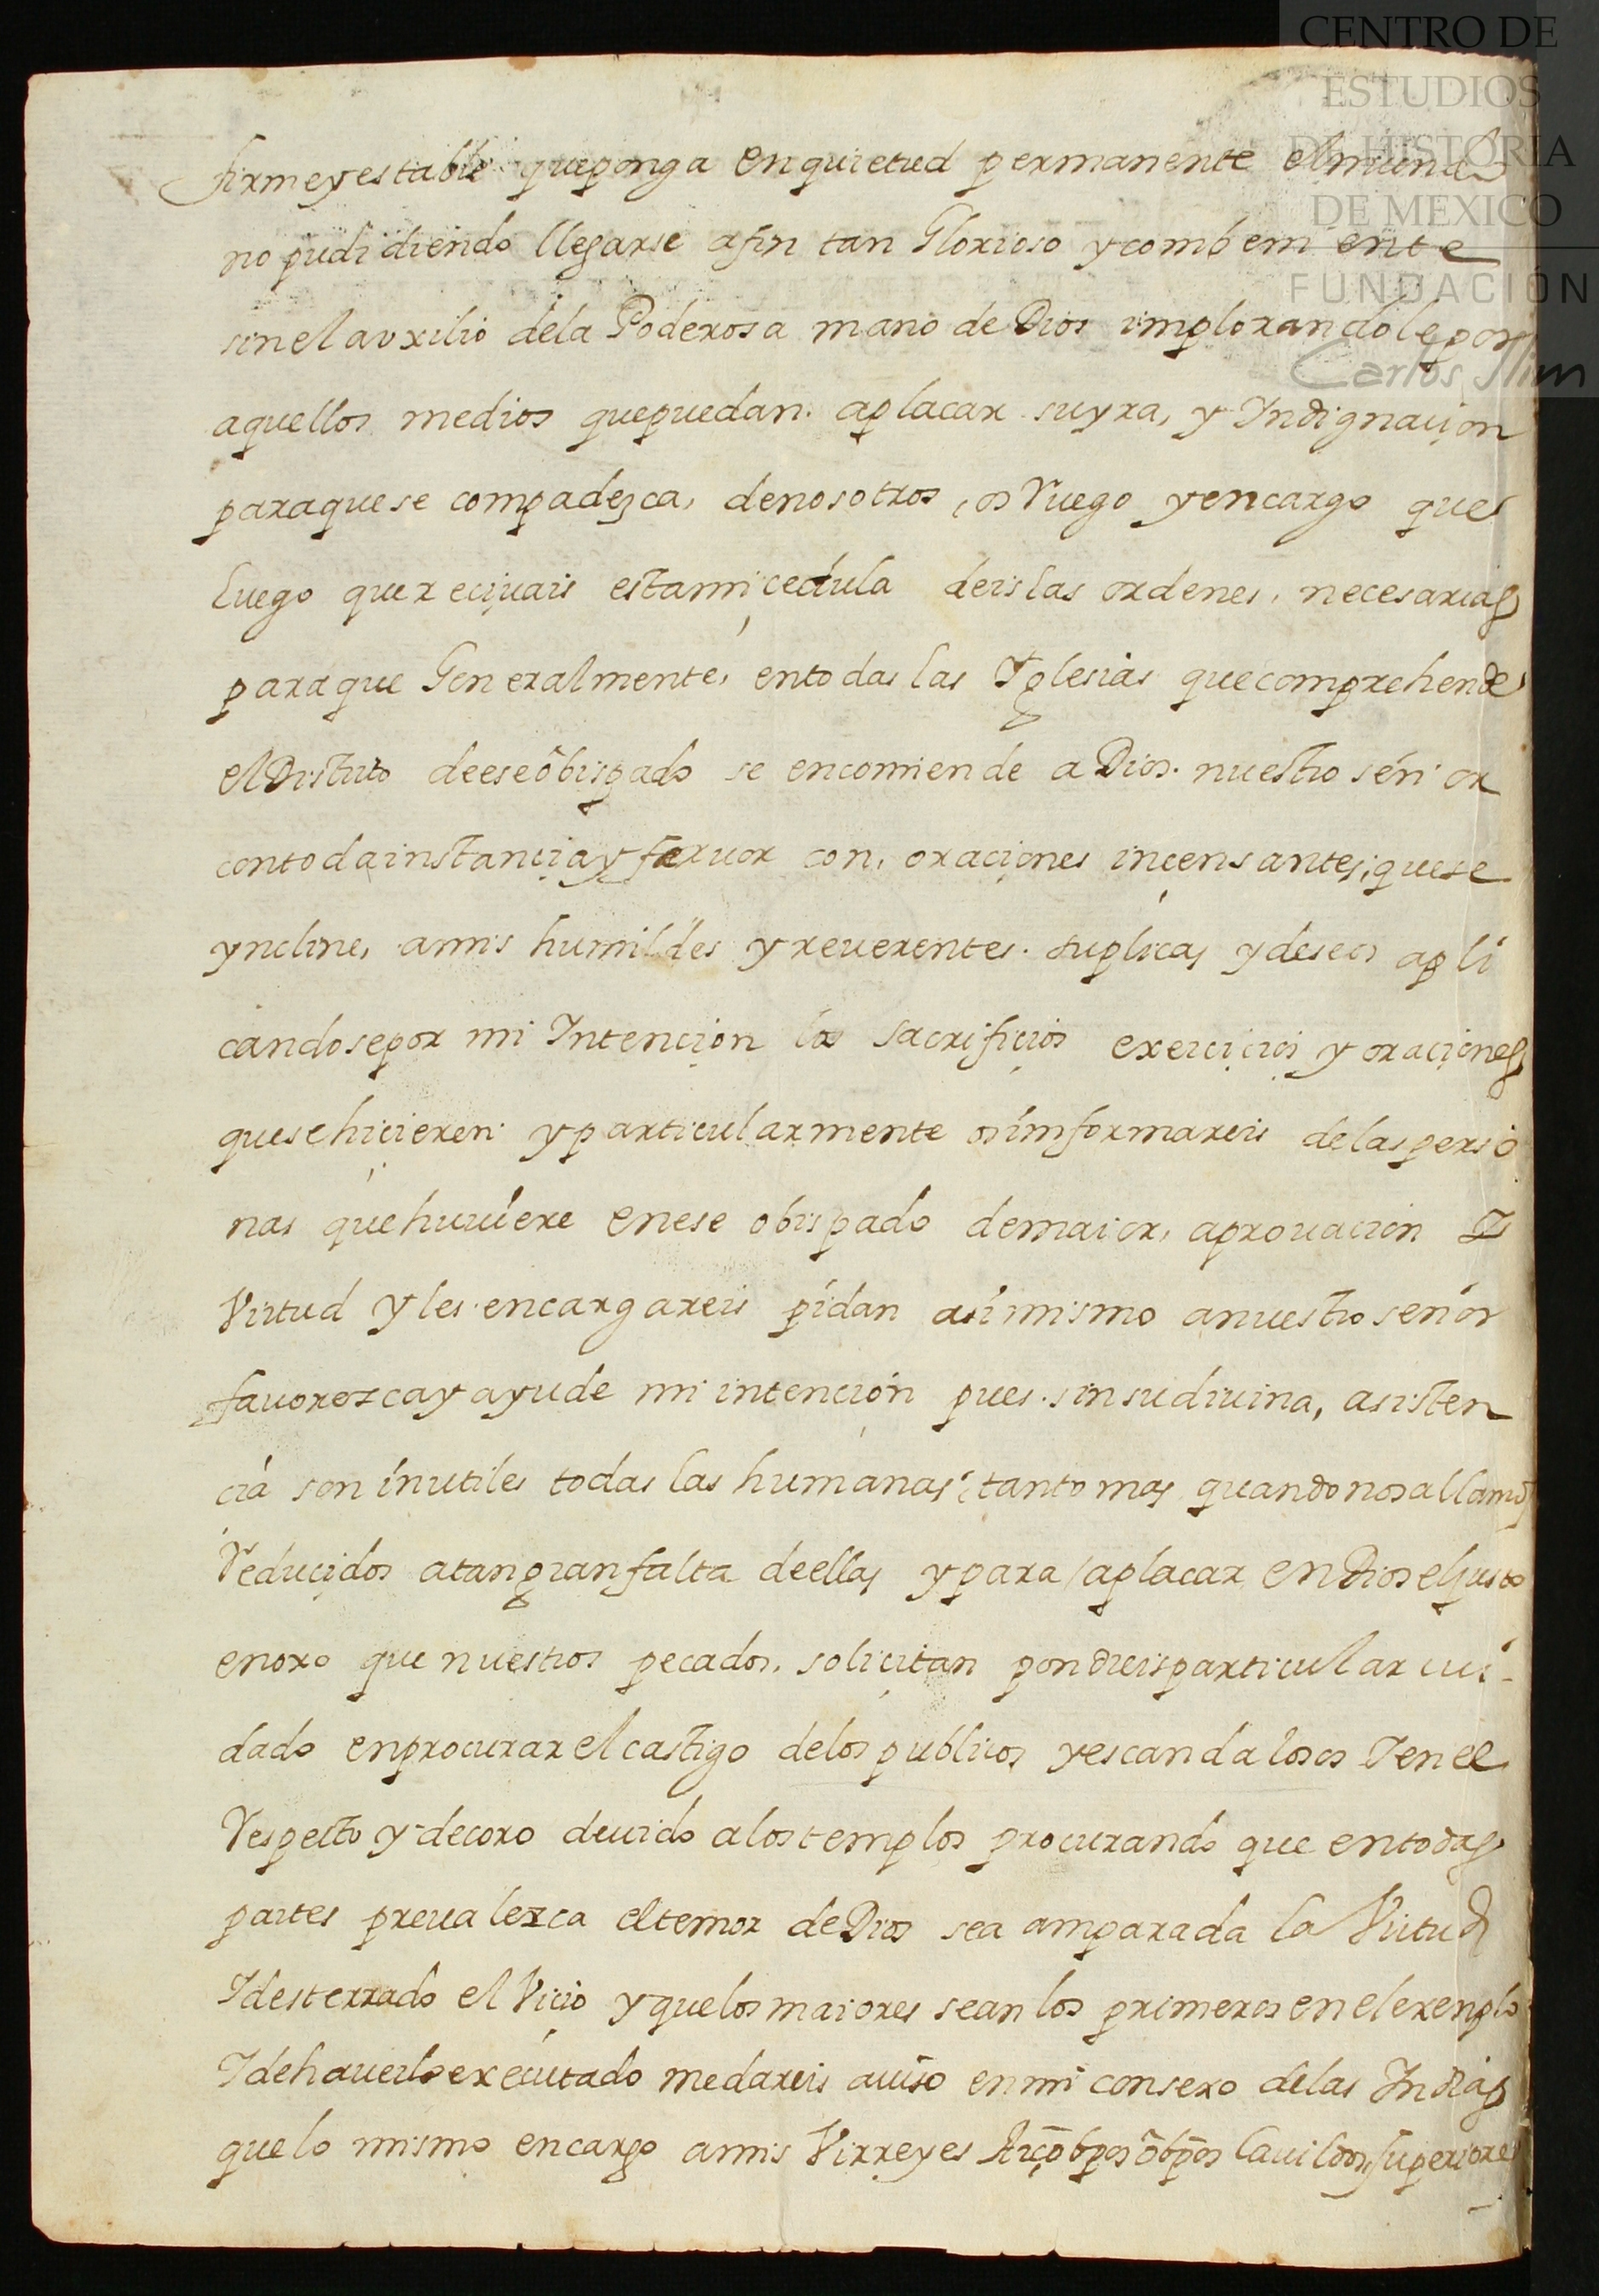 CENTRO DE
ESTUDIOS
DE HISTORIA
DE MEXICO
FUNDACIÓN
Carlos Slim
firme y estable que ponga en quietud permanente el mundo
no pudidiendo llegarse a fin tan Glorioso y combeniente
sin el auxilio de la Poderosa mano de Dios implorandole por
aquellos medios que puedan aplacar su yra, y Indignaçion
para que se compadezca, de nosotros, os Ruego y encargo que
luego que reciuais esta mi çedula deis las ordenes, necesarias
para que Generalmente, en todas las Yglesias que comprehende
el Distrito de ese õbispado se encomiende a Dios nuestro señor
con toda instançia y feruor con, oraçiones inçensantes, que se
yncline, a mis humildes y reuerentes suplicas y deseos apli
candose por mi Intençion los sacrifiçios exerçiçios y oraçiones
que se hiçieren y particularmente os imformareis de las perso
nas que huuiere en ese obispado de maior, aprouacion I
Virtud y les encargareis pidan asimismo a nuestro señor
fauorezca y ayude mi intençion pues sin su diuina, asisten
cia son inutiles todas las humanas, tanto mas quando nos allamos
Reduçidos a tan gran falta de ellas y para aplacar en Dios el justo
enoxo que nuestros pecados, soliçitan pondreis particular cui-
dado en procurar el castigo de los publicos y escandalosos I en el
Respecto y decoro deuido a los templos procurando que en todas
partes preualezca el temor de Dios sea amparada la Virtud
I desterrado el Viçio y que los maiores sean los primeros en el exenplo
I de hauerlo executado me dareis auiso en mi consexo de las Indias
que lo mismo encargo a mis Virreyes Arçõbpos õbp̃os Cauildos, superiores